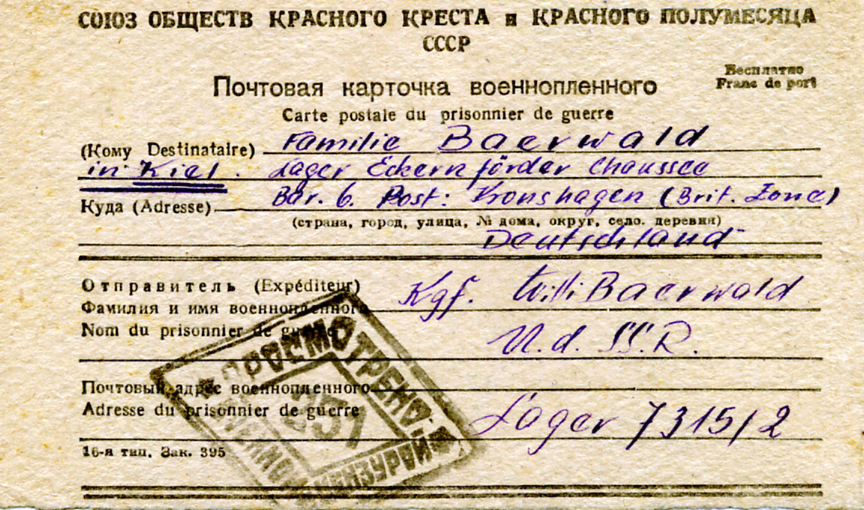 СОЮЗ ОБЩЕСТВ КРАСНОГО КРЕСТА и КРАСНОГО ПОЛУМЕСЯЦА
СССР
Бесплатно
Franc de port
Почтовая карточка военнопленного
Carte postale du prisonnier de guerre
(Кому Destinataire) Familie Baerwald
in Kiel. Lager Eckernförder Chaussee
Куда (Adresse) Bar. 6. Post: Kronshagen (Brit. Zone)
(страна, город, улица, № дома, округ, село, деревня)
Deutschland
Отправитель (Expéditeur) Kgf. Willi Baerwald
Фамилия и имя военнопленного
Nom du prisonnier de guerre U.d.SS.R.
Почтовый адрес военнопленного
Adresse du prisonnier de guerre Lager 7315/2
16-я тип. Зак. 395
ПРОСМОТРЕНО
ВОЕННОЙ ЦЕНЗУРОЙ
231